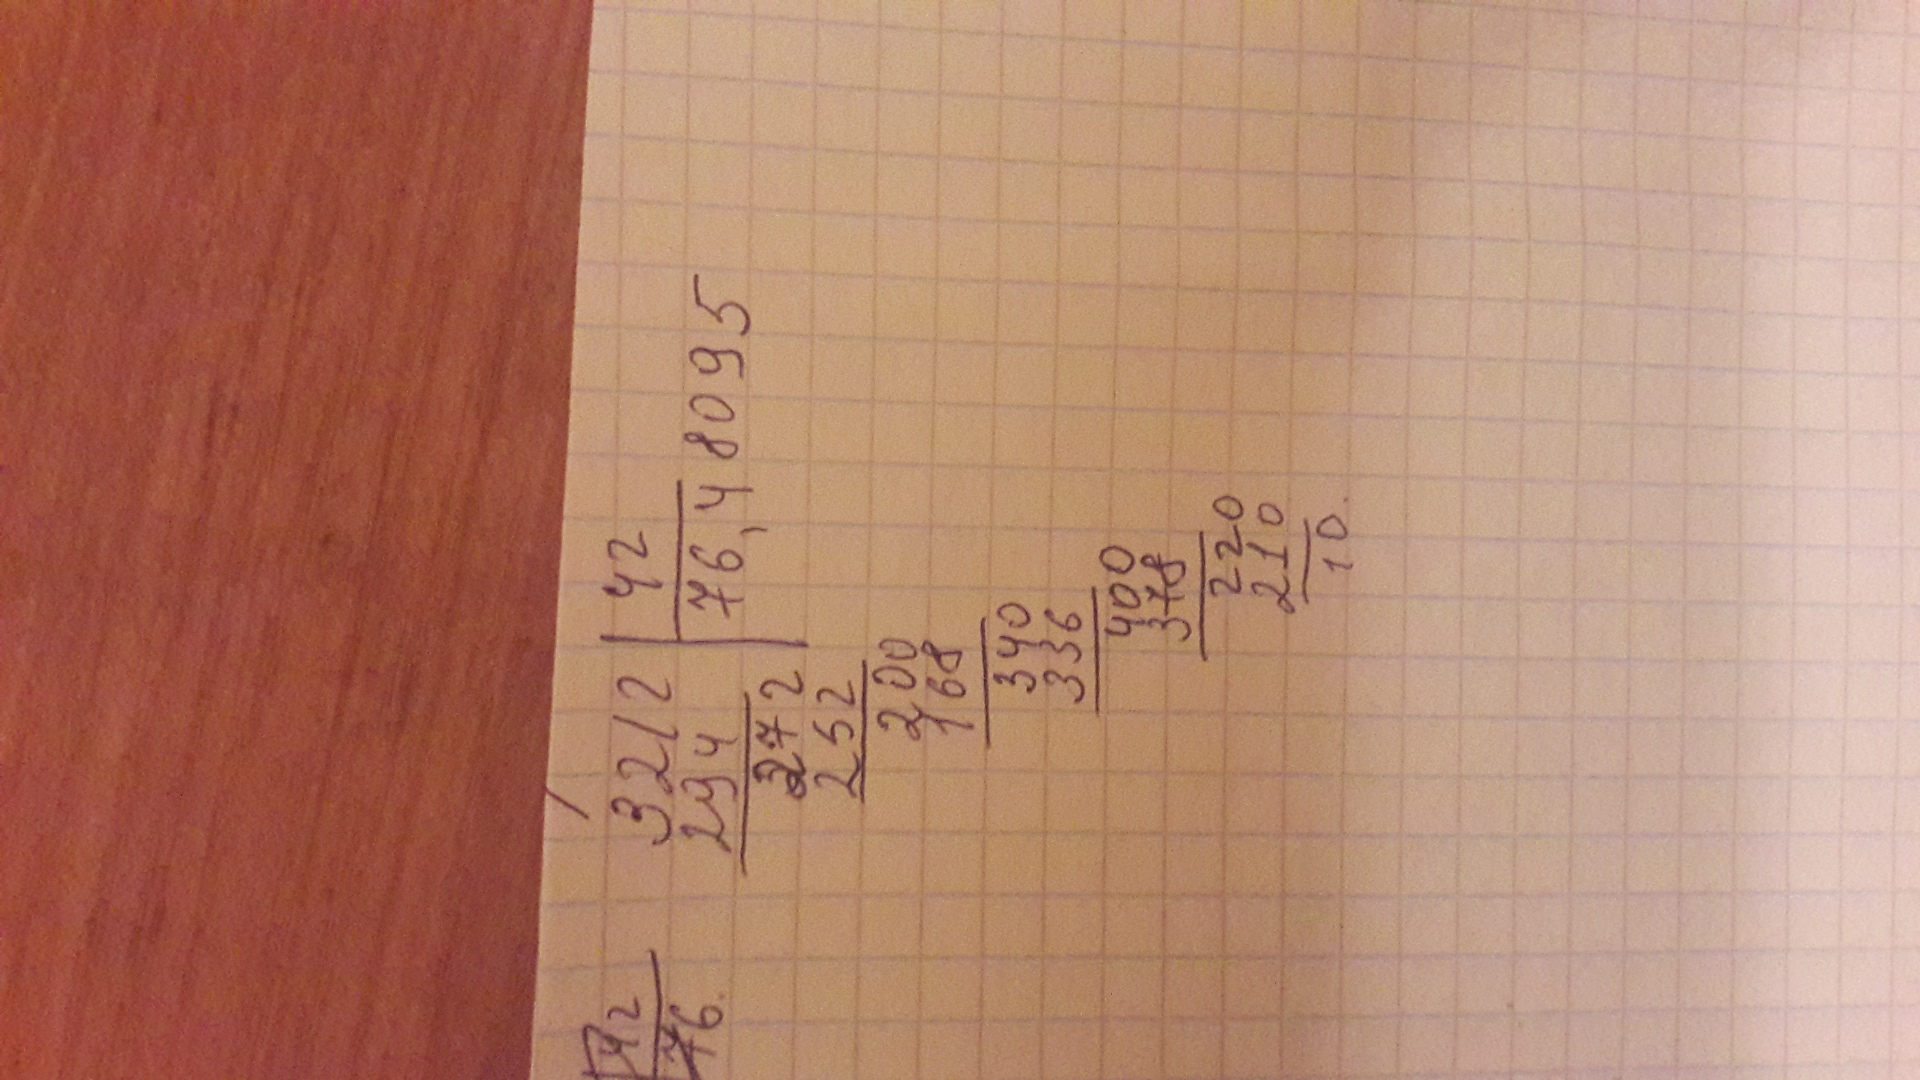 3212 | 42
294 76,48095
272
252
200
168
340
336
400
378
220
210
10.
42
76.